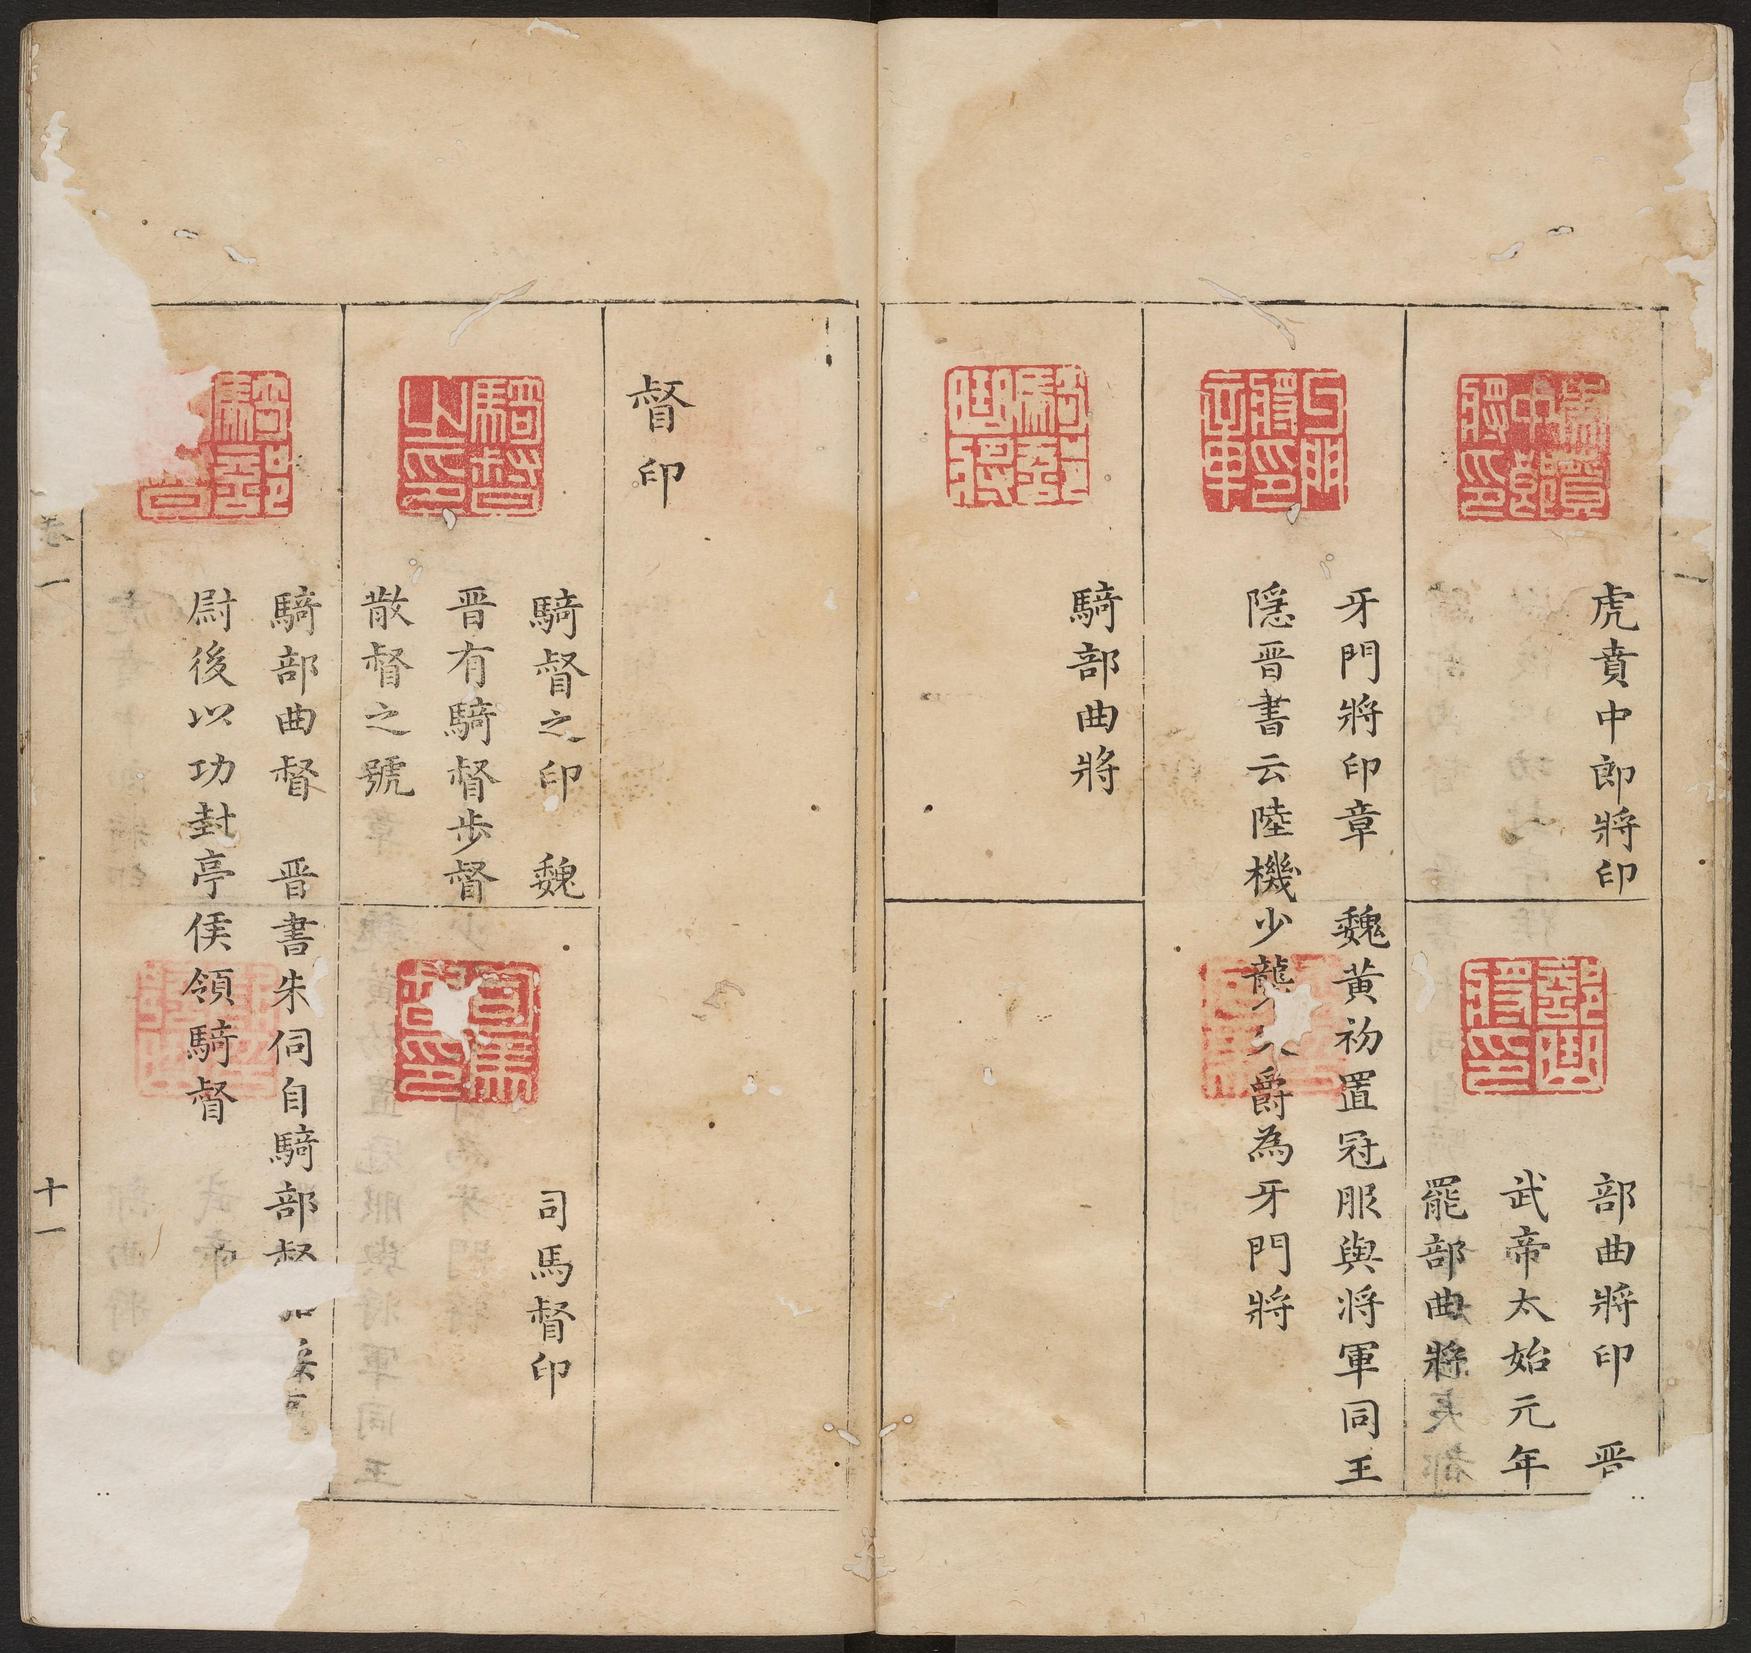 虎賁中郎將印
部曲將印　晋
武帝太始元年
罷部曲將
牙門將印章　魏黃初置冠服與將軍同王
隱晋書云陸機少襲父爵為牙門將
騎部曲將
督印
騎督之印　魏
晋有騎督步督
散督之號
司馬督印
騎部曲督　晋書朱伺自騎部督
尉後以功封亭侯領騎督
卷一
十一